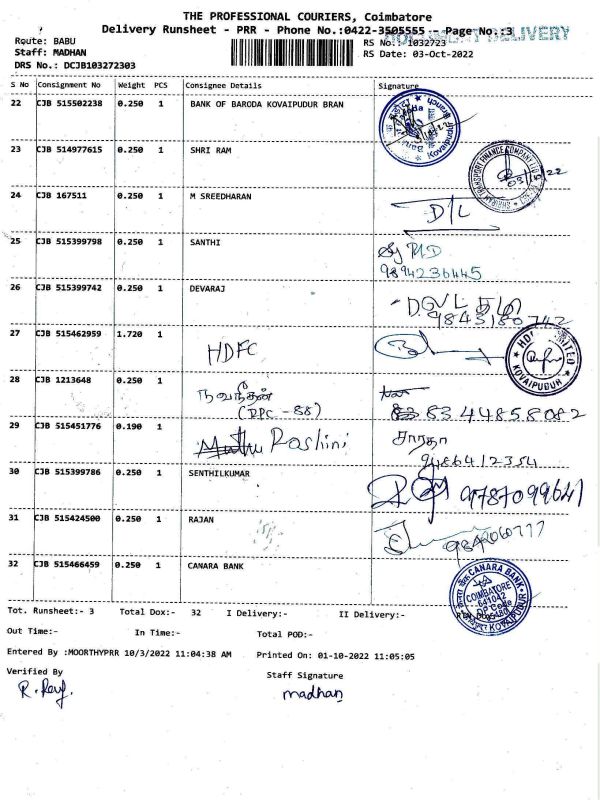 THE PROFESSIONAL COURIERS, Coimbatore
Delivery Runsheet - PRR - Phone No.:0422-3505555 - Page No.:3
DOCUMENT DELIVERY
Route: BABU
RS No.: 1032723
Staff: MADHAN
RS Date: 03-Oct-2022
DRS No.: DCJB103272303
S No Consignment No Weight PCS Consignee Details Signature
22 CJB 515502238 0.250 1 BANK OF BARODA KOVAIPUDUR BRAN
23 CJB 514977615 0.250 1 SHRI RAM
03/10/22
24 CJB 167511 0.250 1 M SREEDHARAN D/L
25 CJB 515399798 0.250 1 SANTHI
9894236445
26 CJB 515399742 0.250 1 DEVARAJ
9843180742
27 CJB 515462959 1.720 1 HDFC
KOVAIPUDUR
28 CJB 1213648 0.250 1 நவநீதன்
(DPC - 88) 8344858082
29 CJB 515451776 0.190 1 Muthu Roshini சாரதா
9486412354
30 CJB 515399786 0.250 1 SENTHILKUMAR 9787099641
31 CJB 515424500 0.250 1 RAJAN
32 CJB 515466459 0.250 1 CANARA BANK
CANARA BANK
COIMBATORE
641042
DP Code
KOVAIPUDUR
Tot. Runsheet:- 3 Total Dox:- 32 I Delivery:- II Delivery:-
Out Time:- In Time:- Total POD:-
Entered By :MOORTHYPRR 10/3/2022 11:04:38 AM Printed On: 01-10-2022 11:05:05
Verified By Staff Signature
madhan